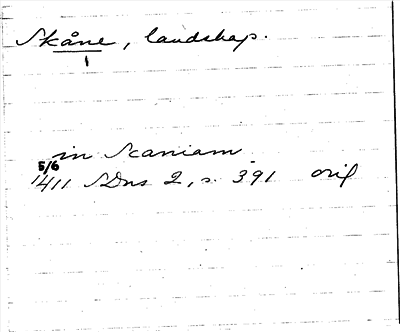 Skåne, landskap.
1
in Scaniam
5/6
1411 SDns 2, s. 391 orig